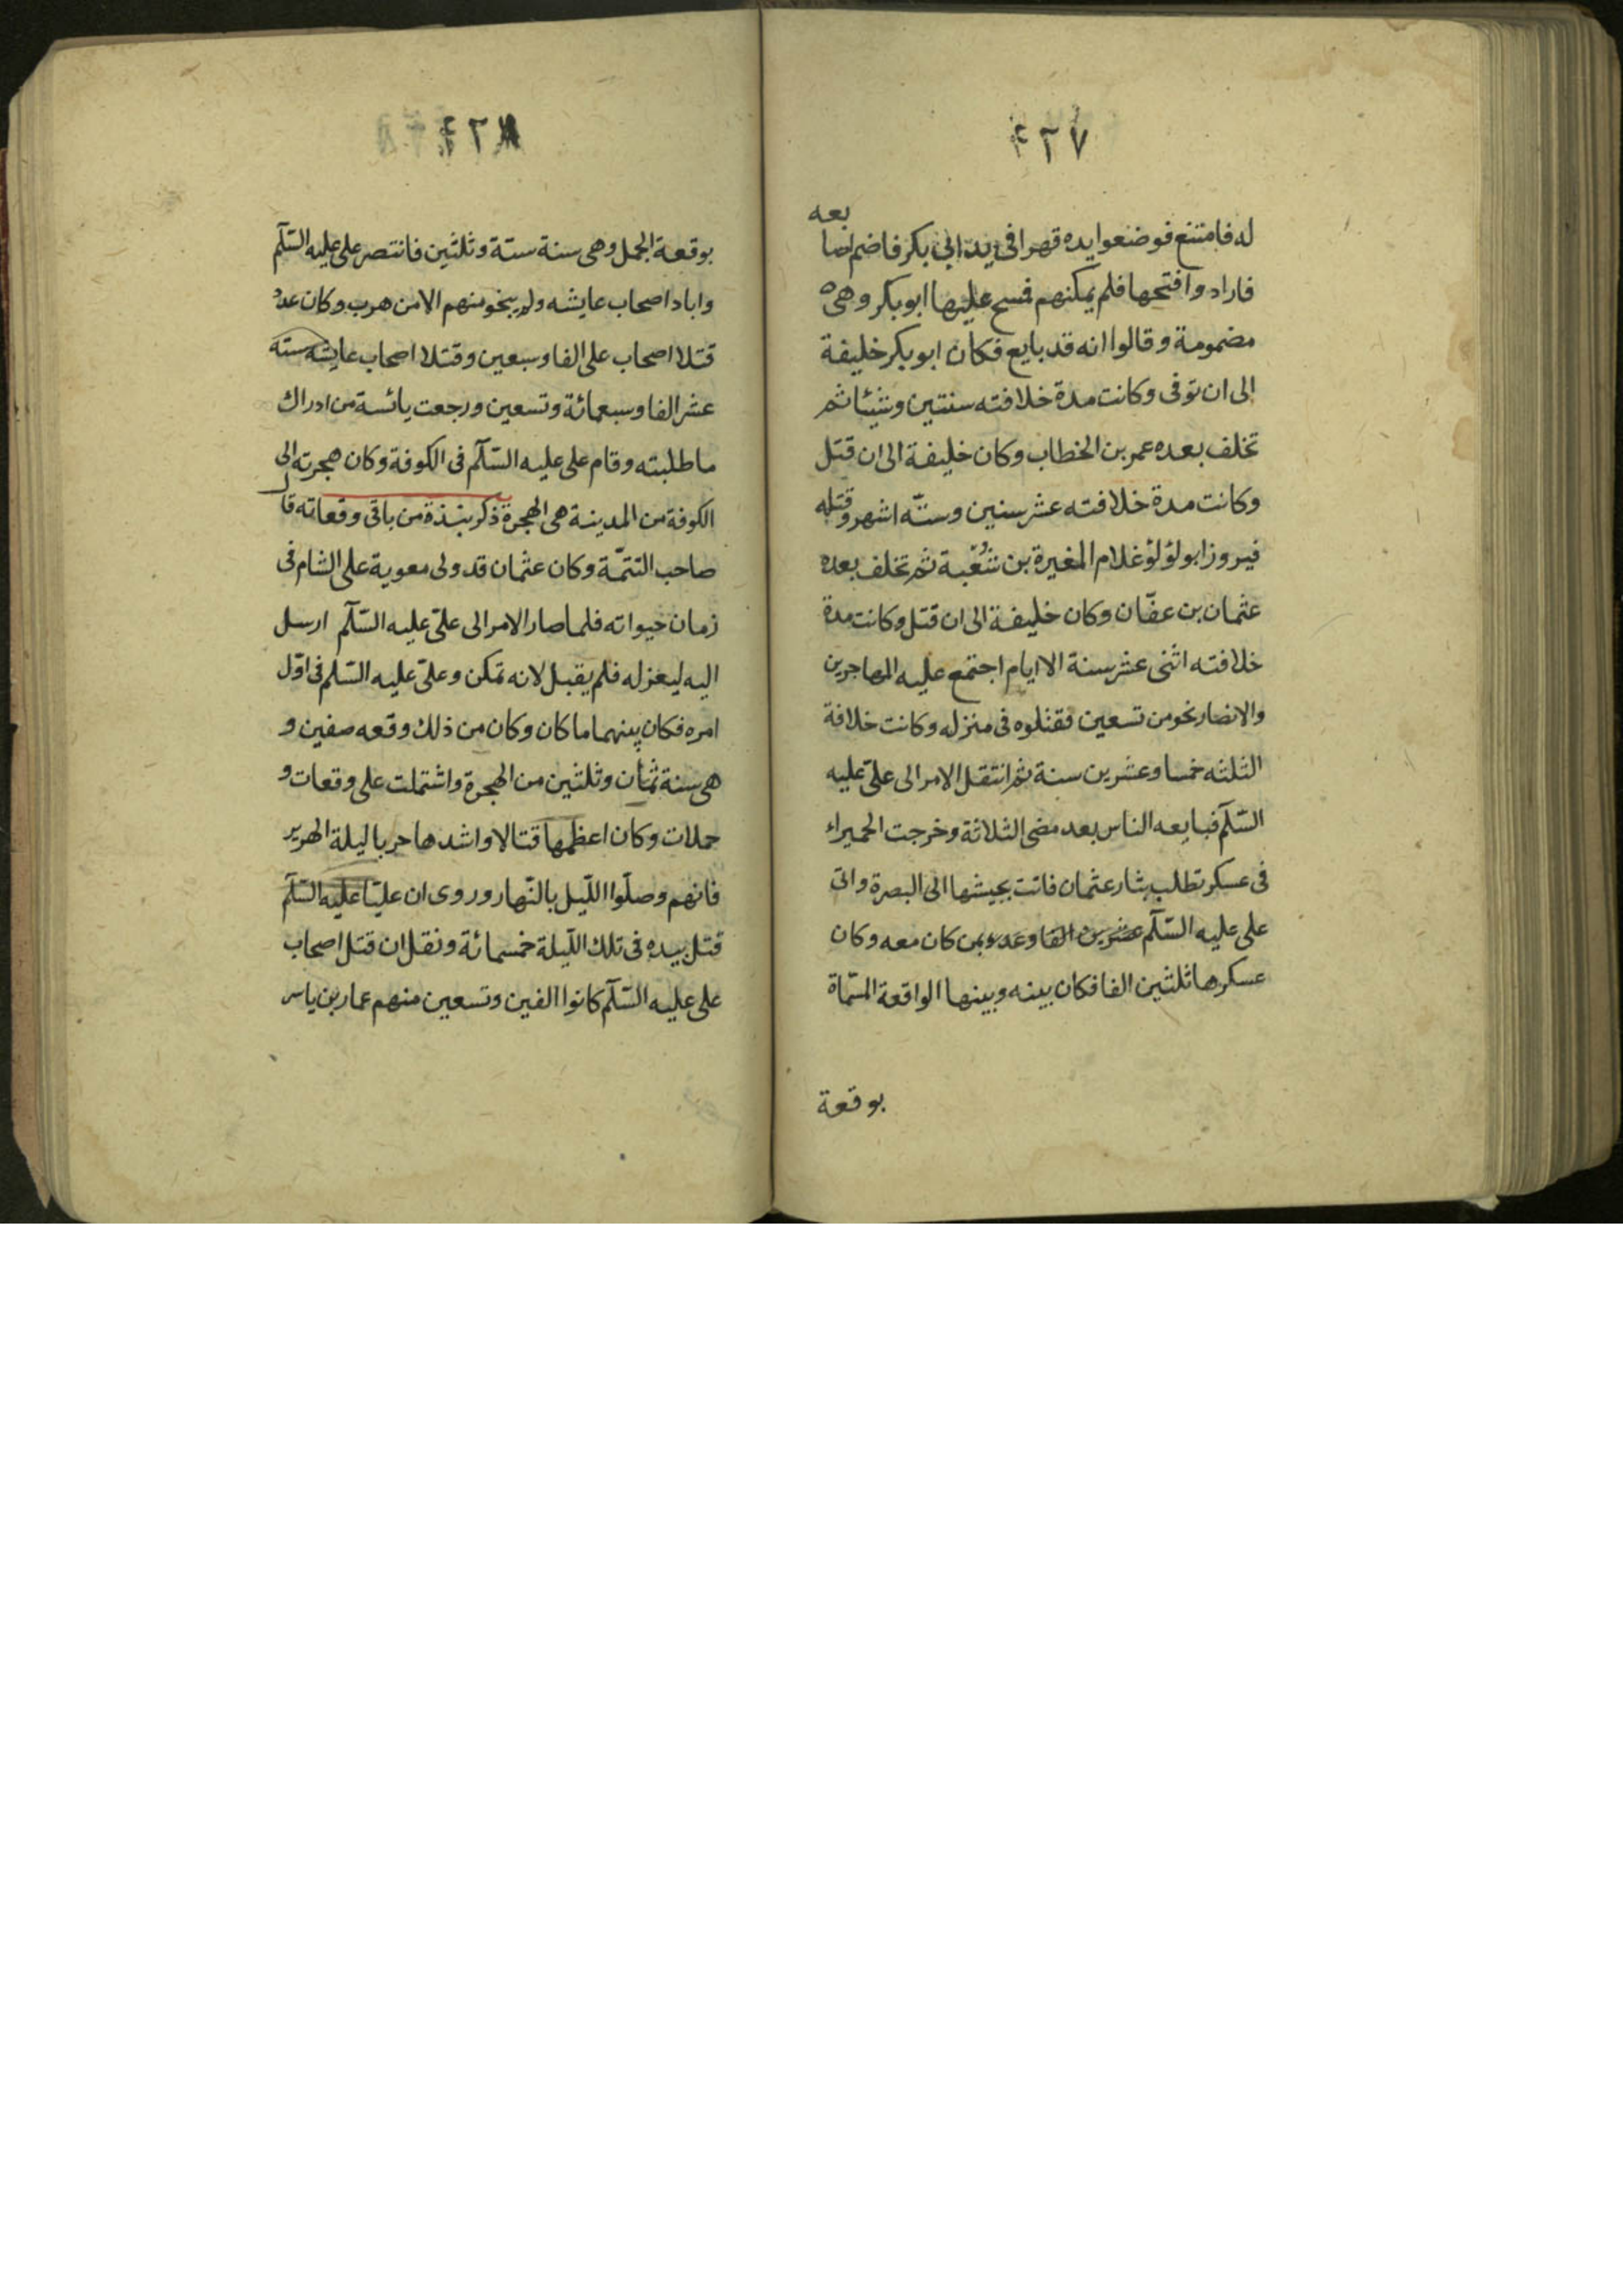 ۴۲۷
له فامتنع فوضعوا يده قهرا فى يد ابي بكر فاضم اصابعه
فارادوا فتحها فلم يمكنهم فمسح عليها ابو بكر وهى
مضمومة وقالوا انه قد بايع فكان ابو بكر خليفة
الى ان توفى وكانت مدة خلافته سنتين وشيئا ثم
تخلف بعده عمر بن الخطاب وكان خليفة الى ان قتل
وكانت مدة خلافته عشر سنين وستّه اشهر وقتله
فيروز ابو لؤلؤ غلام المغيرة بن شُعْبة ثم تخلف بعده
عثمان بن عفّان وكان خليفة الى ان قتل وكانت مدة
خلافته اثنى عشر سنة الا ايام اجتمع عليه المهاجرين
والانصار نحو من تسعين فقتلوه فى منزله وكانت خلافة
الثلثه خمسا وعشرين سنة ثم انتقل الامر الى علىّ عليه
السّلم فبايعه الناس بعد مضى الثلاثة وخرجت الحميراء
فى عسكر تطلب بثار عثمان فاتت بجيشها الى البصرة واتى
على عليه السّلم عشرين الفا وعدوّ بمن كان معه وكان
عسكرها ثلثين الفا فكان بينه وبينها الواقعة المسّماة
بوقعة
۴۲۸
بوقعة الجمل وهى سنة ستة وثلثين فانتصر على عليه السّلم
واباد اصحاب عايشه ولم ينجو منهم الا من هرب وكان عدد
قتلا اصحاب على الفا وسبعين وقتلا اصحاب عايشه سته
عشر الفا وسبعمائة وتسعين ورجعت يائسة من ادراك
ما طلبته وقام على عليه السّلم فى الكوفة وكان هجرته الى
الكوفة من المدينة هى الهجرة ذكر بنذة من باقى وقعاته قال
صاحب التتمّة وكان عثمان قد ولى معوية على الشام فى
زمان حيواته فلما صار الامر الى علىّ عليه السّلم ارسل
اليه ليعزله فلم يقبل لانه تمكن وعلىّ عليه السّلم فى اوّل
امره فكان بينهما ما كان وكان من ذلك وقعه صفين و
هى سنة ثمان وثلثين من الهجرة واشتملت على وقعات و
حملات وكان اعظمها قتالا واشدها حربا ليلة الهرير
فانهم وصلّوا اللّيل بالنّهار وروى ان عليّا عليه السّلم
قتل بيده فى تلك اللّيلة خمسمائة ونقل ان قتل اصحاب
على عليه السّلم كانوا الفين وتسعين منهم عمار بن ياسر